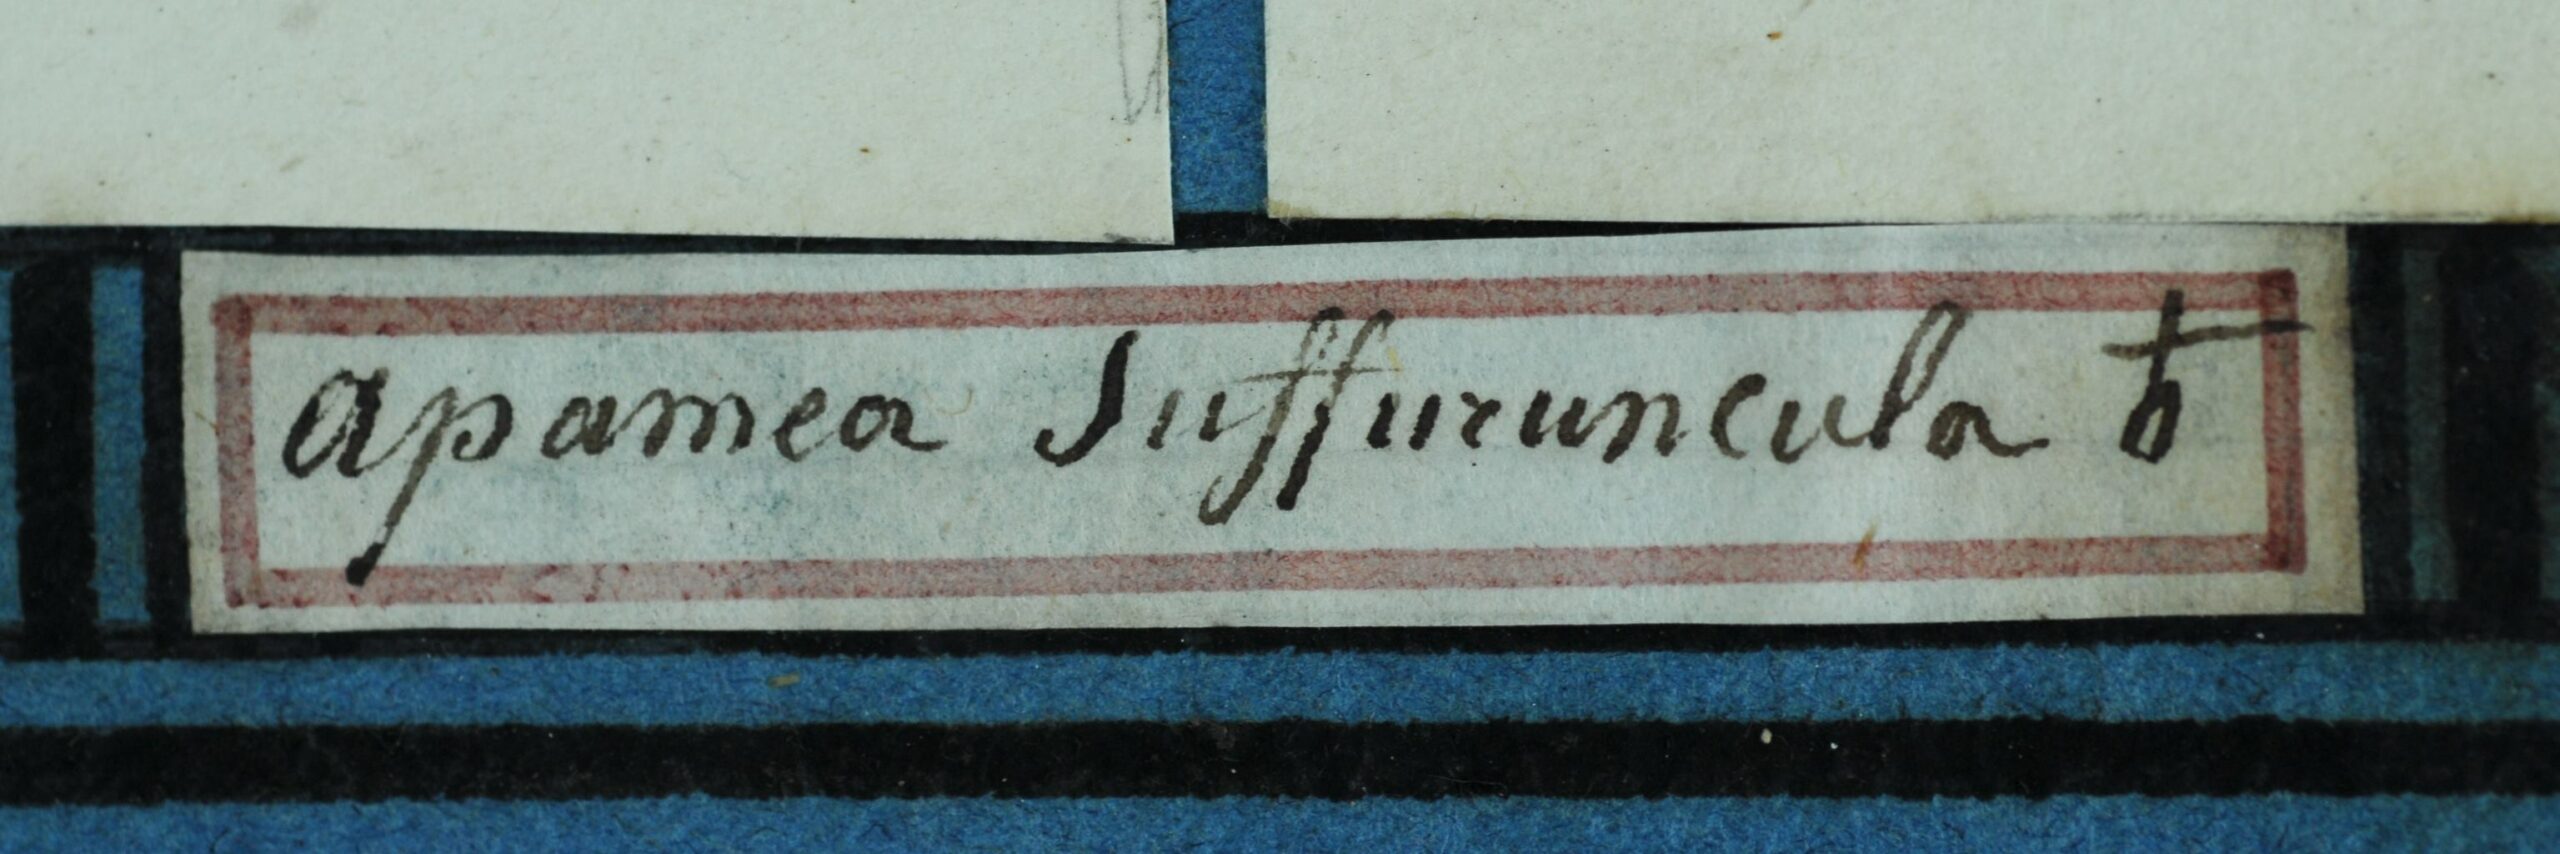 apamea Suffuruncula t